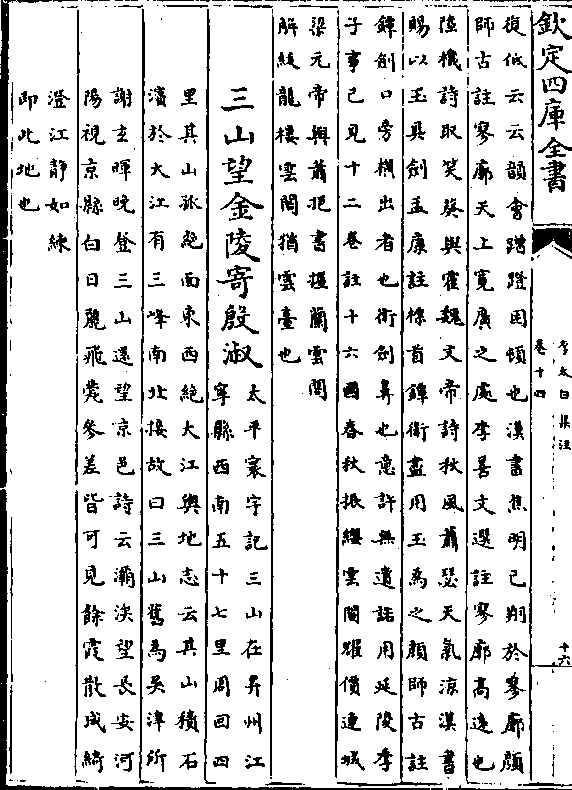 欽定四庫全書
李太白集注
卷十四
十六
復低云云韻會蹭蹬困頓也漢書焦明已翔於寥廓顔
師古註寥廓天上寛廣之處李善文選註寥廓高逺也
陸機詩取笑葵與藿魏文帝詩秋風蕭瑟天氣涼漢書
賜以玉具劍孟康註摽首鐔衛盡用玉為之顔師古註
鐔劍口旁横出者也衛劍鼻也意許無遺諾用延陵季
子事已見十二卷註十六國春秋振纓雲閣耀價連城
梁元帝與蕭挹書握蘭雲閣
解紱龍樓雲閣猶雲臺也
三山望金陵寄殷淑
太平寰宇記三山在昇州江
寧縣西南五十七里周回四
里其山孤絶面東西絶大江輿地志云其山積石
濵於大江有三峰南北接故曰三山舊為吳津所
謝玄暉晚登三山還望京邑詩云灞涘望長安河
陽視京縣白日麗飛甍參差皆可見餘霞散成綺
澄江静如練
即此地也